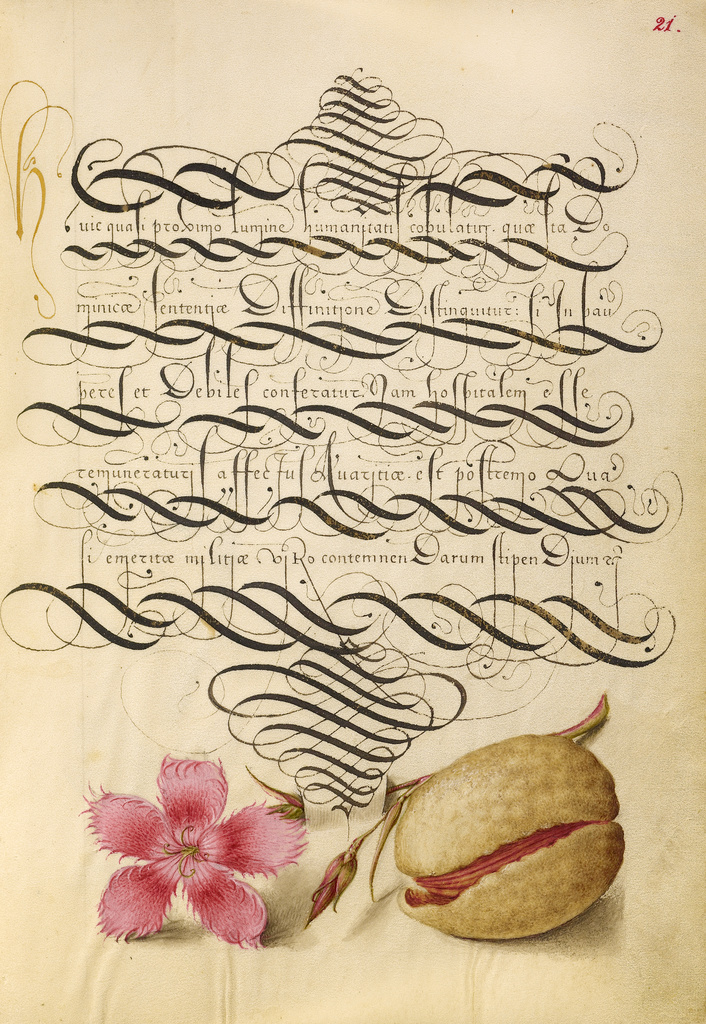 21.
Huic quasi proximo lumine humanitati copulatur. quæ sta Do
minicæ sententiæ Diffinitione Distinguitur: si In pau
peres et Debiles conferatur. Nam hospitalem esse
remuneraturis affectus Avaritiæ est postremo Qua
si emeritæ militiæ viRo contemnenDarum stipenDium